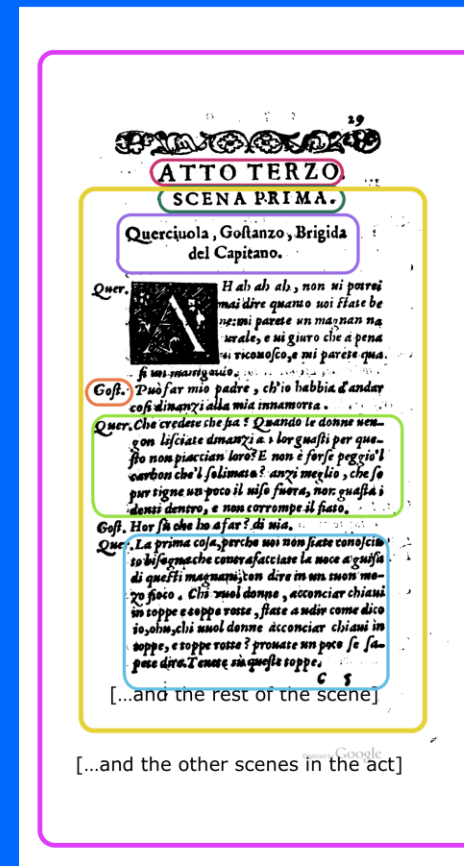 29
ATTO TERZO.
SCENA PRIMA.
Querciuola, Goſtanzo, Brigida
del Capitano.
Quer. AH ah ah, non ui potrei
mai dire quanto uoi ſtate be
ne: mi parete un magnan na
urale, e ui giuro che a pena
ui riconoſco, e mi parete qua
ſi un manigauio.
Goſt. Può far mio padre, ch'io habbia d'andar
coſi dinanzi alla mia innamorta.
Quer. Che credete che ſia? Quando le donne uen-
gon liſciate dinanzi a i lor guaſti per que-
ſto non piaccian loro? E non è forſe peggio'l
carbon che'l ſolimato? anzi meglio, che ſe
pur tigne un poco il uiſo fuora, non guaſta i
denti dentro, e non corrompe il fiato.
Goſt. Hor ſù che ho a far? di uia.
Quer. La prima coſa, perche uoi non ſiate conoſciu
to biſogna che contrafacciate la uoce a guiſa
di queſti magnani, con dire in un tuon me-
zo fioco. Chi uuol donne, acconciar chiaui
in toppe e toppe rotte, ſtate a udir come dico
io, ohu, chi uuol donne acconciar chiaui in
toppe, e toppe rotte? prouate un poco ſe ſa-
pete dire. Tenete sù queſte toppe.
C 5
[...and the rest of the scene]
Google
[...and the other scenes in the act]